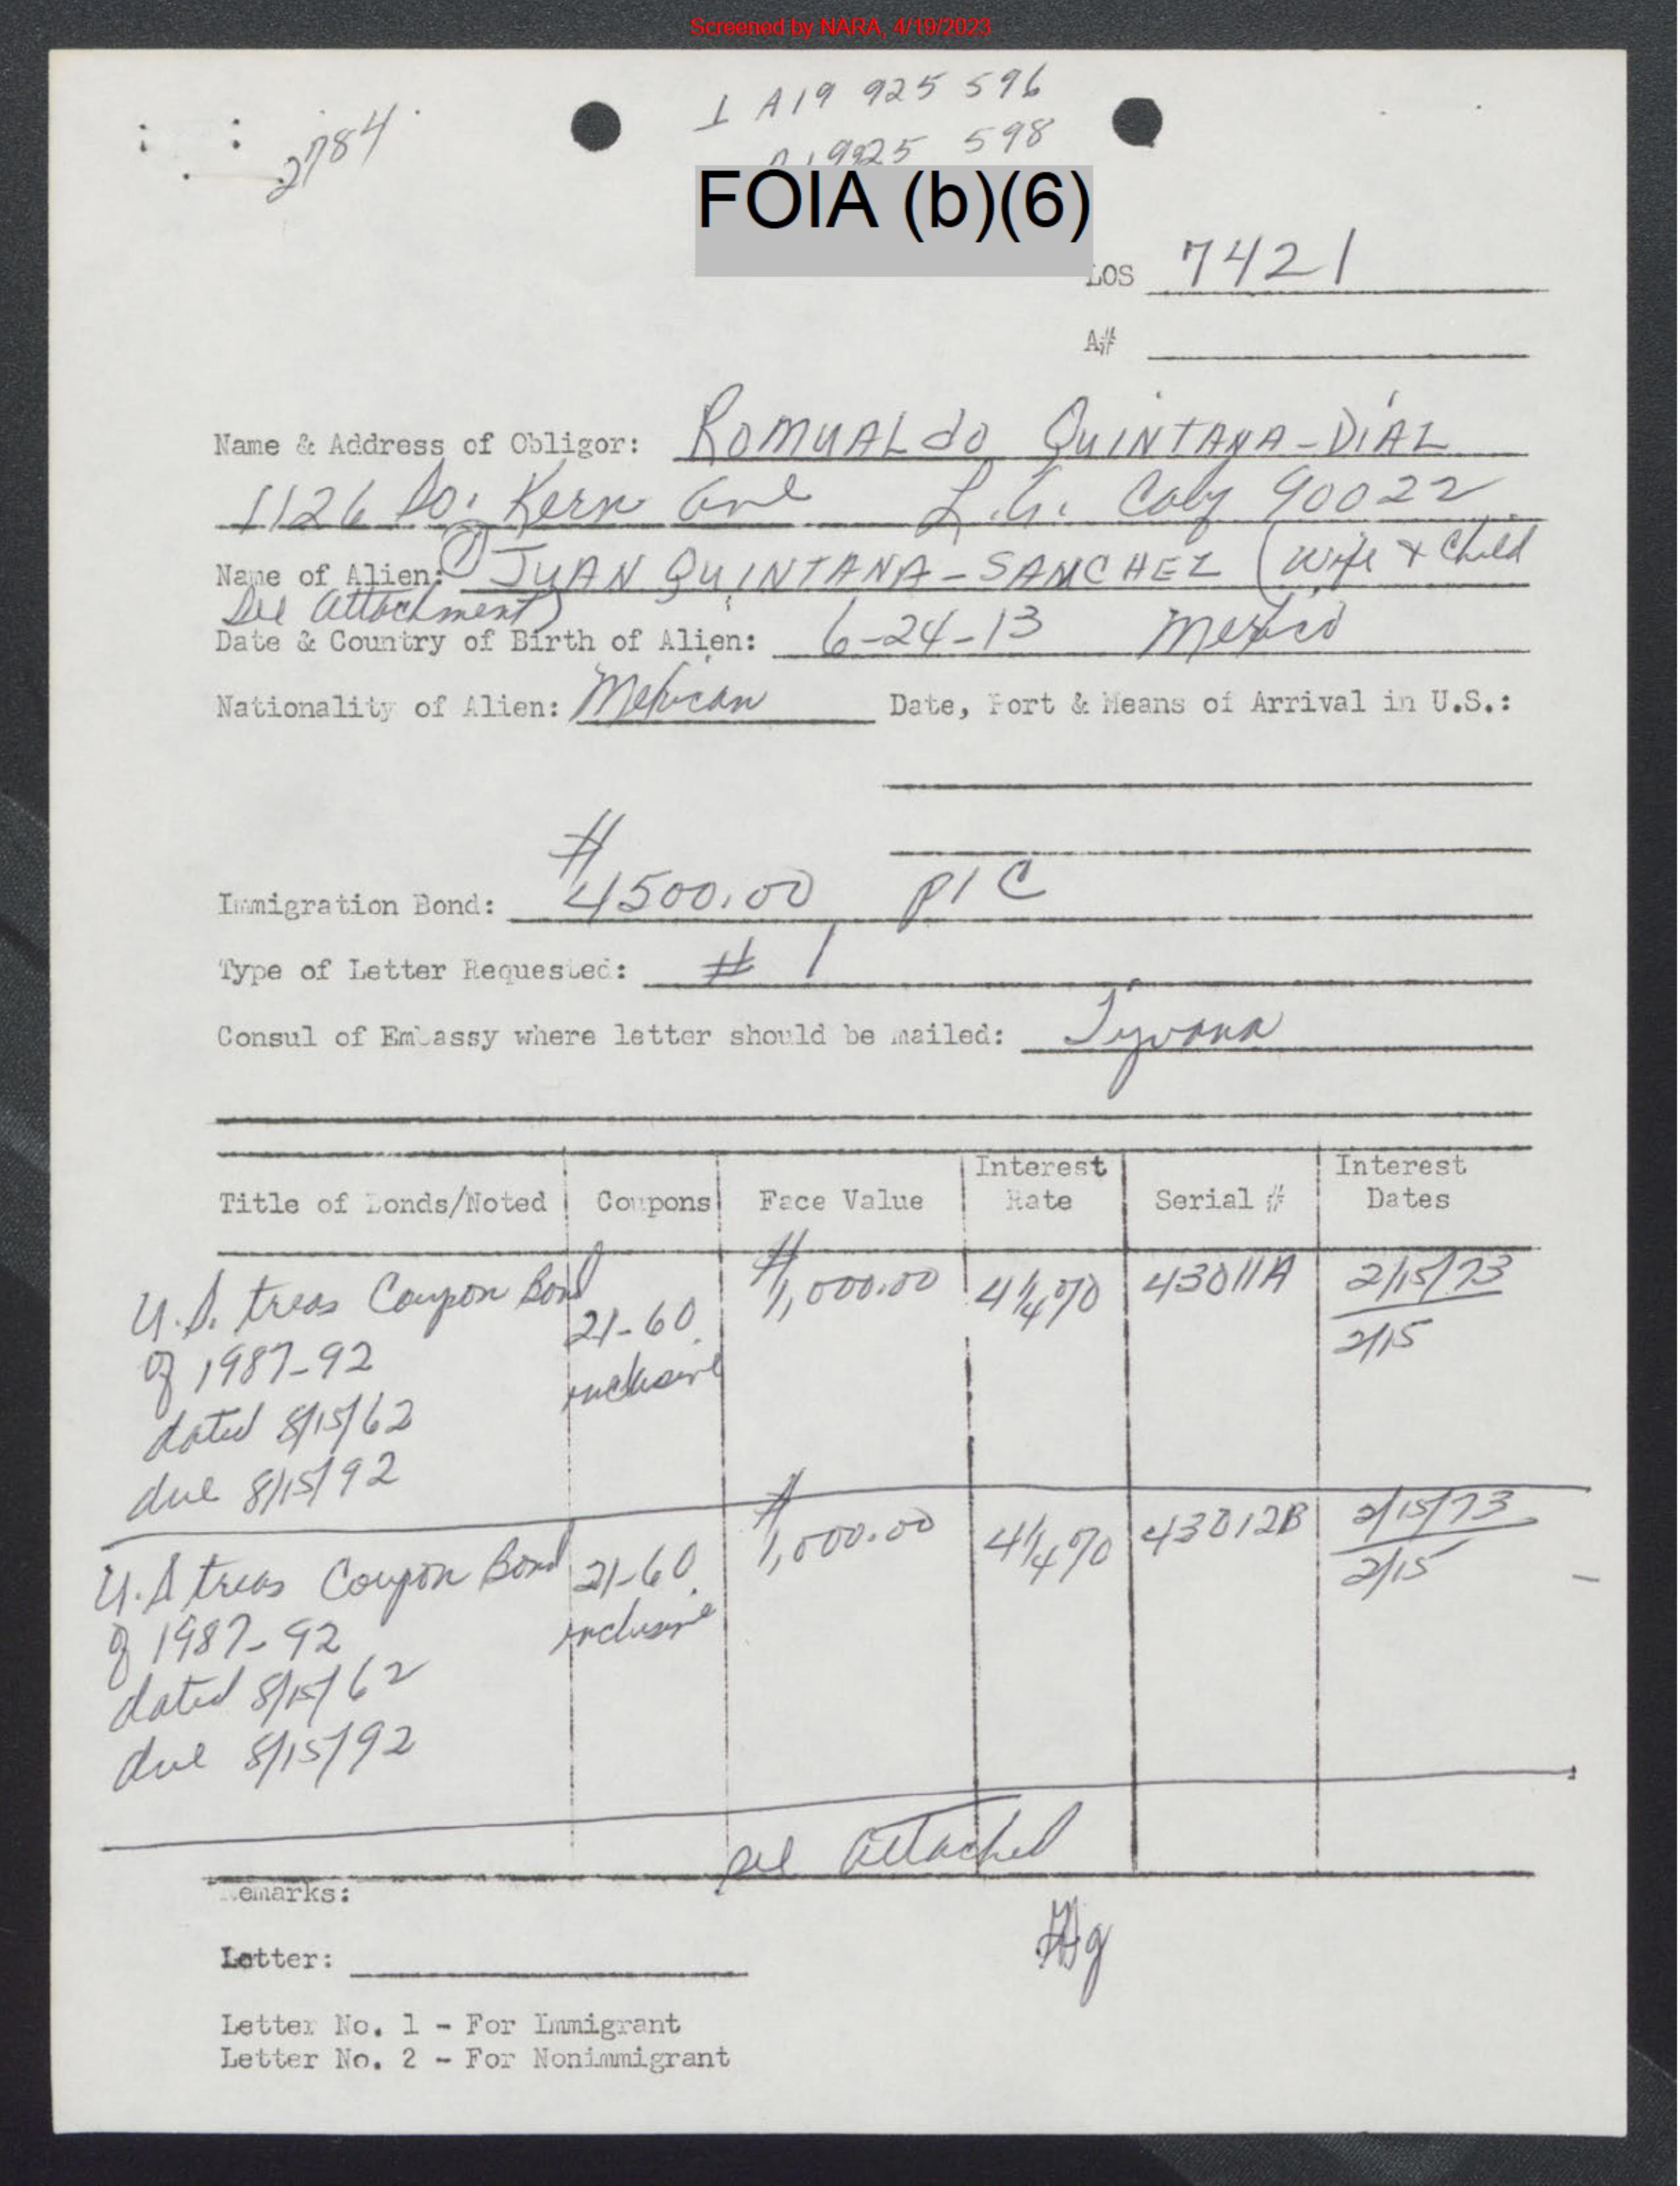 Screened by NARA, 4/19/2023
2784
1 A19 925 596
A19925 598
FOIA (b)(6)
LOS 7421
A#
Name & Address of Obligor: ROMUALdO QUINTANA-DIAZ
1126 So. Kern Ave L.A. Calif 90022
Name of Alien: (1) JUAN QUINTANA-SANCHEZ (Wife & Child
See Attachment)
Date & Country of Birth of Alien: 6-24-13 Mexico
Nationality of Alien: Mexican Date, Port & Means of Arrival in U.S.:
Immigration Bond: $4500.00 P/C
Type of Letter Requested: # 1
Consul of Embassy where letter should be mailed: Tijuana
Title of Bonds/Noted Coupons Face Value Interest Rate Serial # Interest Dates
U.S. treas Coupon Bond 21-60 $1,000.00 4 1/4 % 43011A 2/15/73
of 1987-92 inclusive 2/15
dated 8/15/62
due 8/15/92
U.S treas Coupon Bond 21-60 $1,000.00 4 1/4 % 43012B 2/15/73
of 1987-92 inclusive 2/15
dated 8/15/62
due 8/15/92
see attached
Remarks:
Letter:
Letter No. 1 - For Immigrant
Letter No. 2 - For Nonimmigrant